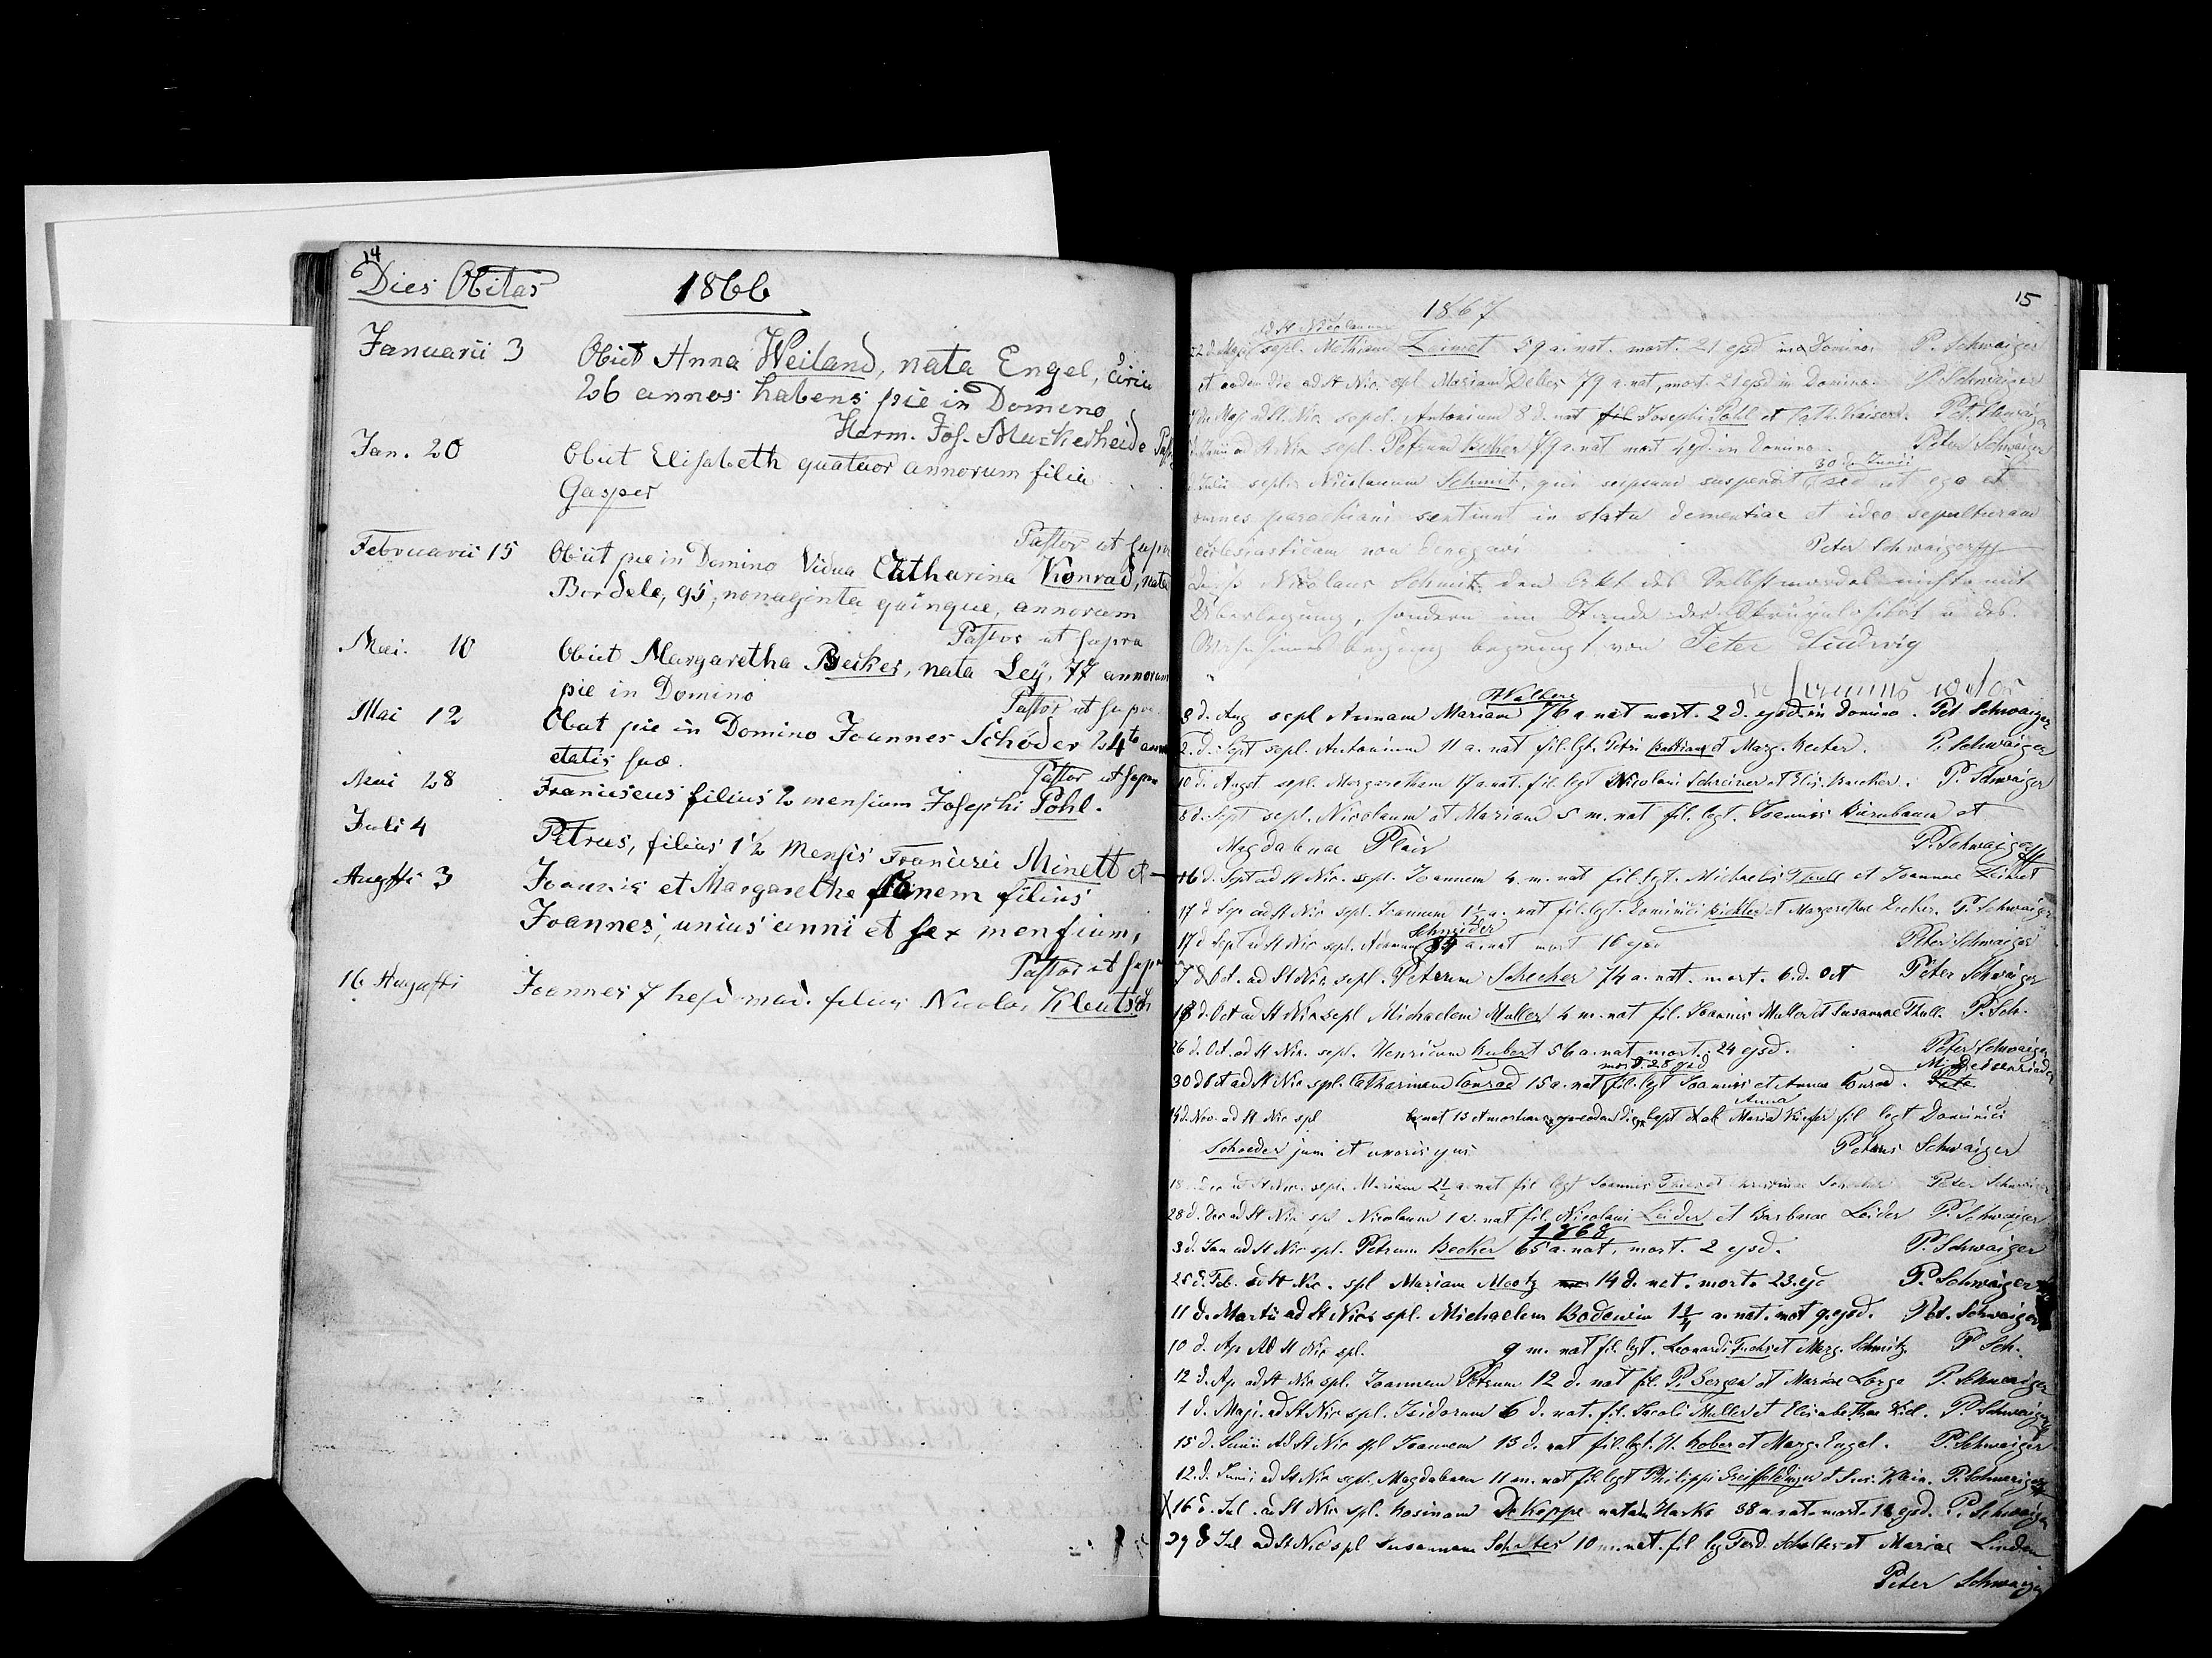 14
Dies Obitus 1866
Januarii 3 Obiit Anna Weiland, nata Engel, circa
26 annos habens pie in Domino
Herm. Jos. Muckerheide
Jan. 20 Obiit Elisabeth quatuor annorum filia
Gasper
Pastor ut supra
Februarii 15 Obiit pie in Domino Vidua Catharina Konrad, nata
Bordele, 95, nonaginta quinque, annorum
Pastor ut supra
Mai. 10 Obiit Margaretha Becker, nata Ley, 77 annorum
pie in Domino
Pastor ut supra
Mai 12 Obiit pie in Domino Joannes Schöder 24to anno
etatis suo.
Pastor ut supra
Mai 28 Franciscus filius 2 mensium Josephi Pohl.
Juli 4 Petrus, filius 1½ Mensis Francisci Minett et —
Augsti 3 Joannis et Margaretha filius
Joannes, unius anni et sex mensium,
Pastor ut supra
16 Augusti Joannes 7 filius Nicolai Kleutsch
15
1867
ad St Nicolaum
22 d. Maji sepl. Mathiam Zeimet 59 a. nat. mort. 21 ejsd in Domino P. Schwaiger
et eodem die ad St Nic. spl. Mariam Deber 79 a. nat, mort. 21 ejsd in Domino. P. Schwaiger
d. Maj ad St. Nic sepel. Antonium 8 d. nat fil Josephi Pohl et Cath. Kaiser. Pet. Schwaiger
Junii ad St Nic sepl. Petrum Becker 79 a. nat mort ejsd. in Domino. Peter Schwaiger
30 d. Junii
d. Julii sepl. Nicolaum Schmit, qui seipsum suspendit, sed ut ego et
omnes parochiani sentiunt in statu dementiae et ideo sepulturam
ecclesiasticam non denegavi Peter Schwaiger
Nicolaus Schmit den Akt des Selbstmordes nicht mit
Überlegung, sondern im Stande der Skrupulosität u des
Wahnsinnes beging bezeugt von Peter Ludwig
3 d. Aug sepl Annam Mariam 76 a. nat mort. 2 d. ejsd. in Domino. Pet Schwaiger
2. d. Sept sepl. Antonium 11 a. nat fil. lgt. Petri Bastian et Marg. Reuter. P. Schwaiger
10 d. Augst sepl. Margaretham 17 a. nat. fil. legt Nicolai Schreiner et Elis. P. Schwaiger
8 d. Sept sepl. Nicolaum et Mariam 5 m. nat fil. legt. Joannis Birnbaum et
Magdalenae Plein P. Schwaiger
16 d. Sept ad St Nic. sepl. Joannem 4. m. nat fil. lgt. Michaelis Thull et Joannae Zeimet
17 d Sep ad St Nic sepl. Joannem 1½ a. nat fil. legt. Dominici Bickler et Margarethae Becker. P. Schwaiger
Schneider
17 d Sept ad St Nic sepl. 84 a. nat mort 16 ejsd Peter Schwaiger
7 d Oct. ad St Nic. sepl. Peterum Schecher 74 a. nat. mort. 6. d. Oct Peter Schwaiger
18 d. Oct ad St Nic sepl Michaelem Muller 4 m. nat fil. Joannis Muller et Susannae Thull. P. Sch.
26 d. Oct. ad St Nic. sepl. Henricum Kubert 56 a. nat mort. 24 ejsd. Peter Schwaiger
mort. 28 ejsd
30 d Oct ad St Nic spl. Catharinam Conrad 15 a. nat fil. legt Joannis et Annae Conrad.
Anna
14 d. Nov. ad St Nic spl nat 13 et mortuam eodem die, bapt et ab Maria fil legt Dominici
Schroeder jun. et uxoris ejus Petrus Schwaiger
18 Dec ad St Nic. sepl. Mariam 2½ a. nat fil legt Joannis et Peter Schwaiger
28 d. Dec ad St Nic spl Nicolaum 1 a. nat fil. Nicolai Leider et Barbarae Leider P. Schwaiger
1868
3 d. Jan ad St Nic spl. Petrum Becker 65 a. nat, mort. 2 ejsd. P. Schwaiger
25 d. Feb. ad St Nic. spl Mariam Mootz 14 d. nat. mort. 23. ejd P. Schwaiger
11 d. Martii ad St Nic spl. Michaelem Bodewin 1¼ a. nat. mort 9. ejsd. Pet. Schwaiger
10 d. Ap Ad St Nic spl. 9 m. nat fil. legt. Leonardi Fuchs et Marg. Schmitz P Sch.
12 d. Ap ad St Nic spl. Joannem Petrum 12 d. nat fil. P. Bergen et Mariae Lorge P. Schwaiger
1 d. Maji. ad St Nic spl. Isidorum 6 d. nat. fil. Jacobi Muller et Elisabethae Kiel. P. Schwaiger
15 d. Junii Ad St Nic spl Joannem 13 d. nat fil. legt. H. Kober et Marg. Engel. P. Schwaiger
12. d. Junii ad St Nic sepl. Magdalenam 11 m. nat fil legt Philippi et Klein. P. Schwaiger
X 16 d. Jul. ad St Nic spl. Rosinam De Koppe natam Harke 38 a. nat. mort. 14 ejsd. P. Schwaiger
29 d Jul ad St Nic spl Susannam Scholtes 10 m. nat. fil lg Ferd. Scholtes et Mariae Linden
Peter Schwaiger